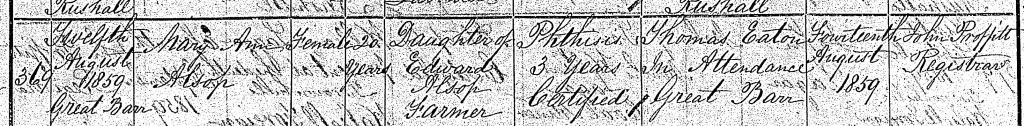 Rushall Rushall
Twelfth Mary Ann Female 20 Daughter of Phthisis Thomas Eaton Fourteenth John Proffitt
August Alsop Years Edward 3 Years In Attendance August Registrar
369 1859 Alsop Certified Great Barr 1859
Great Barr Farmer